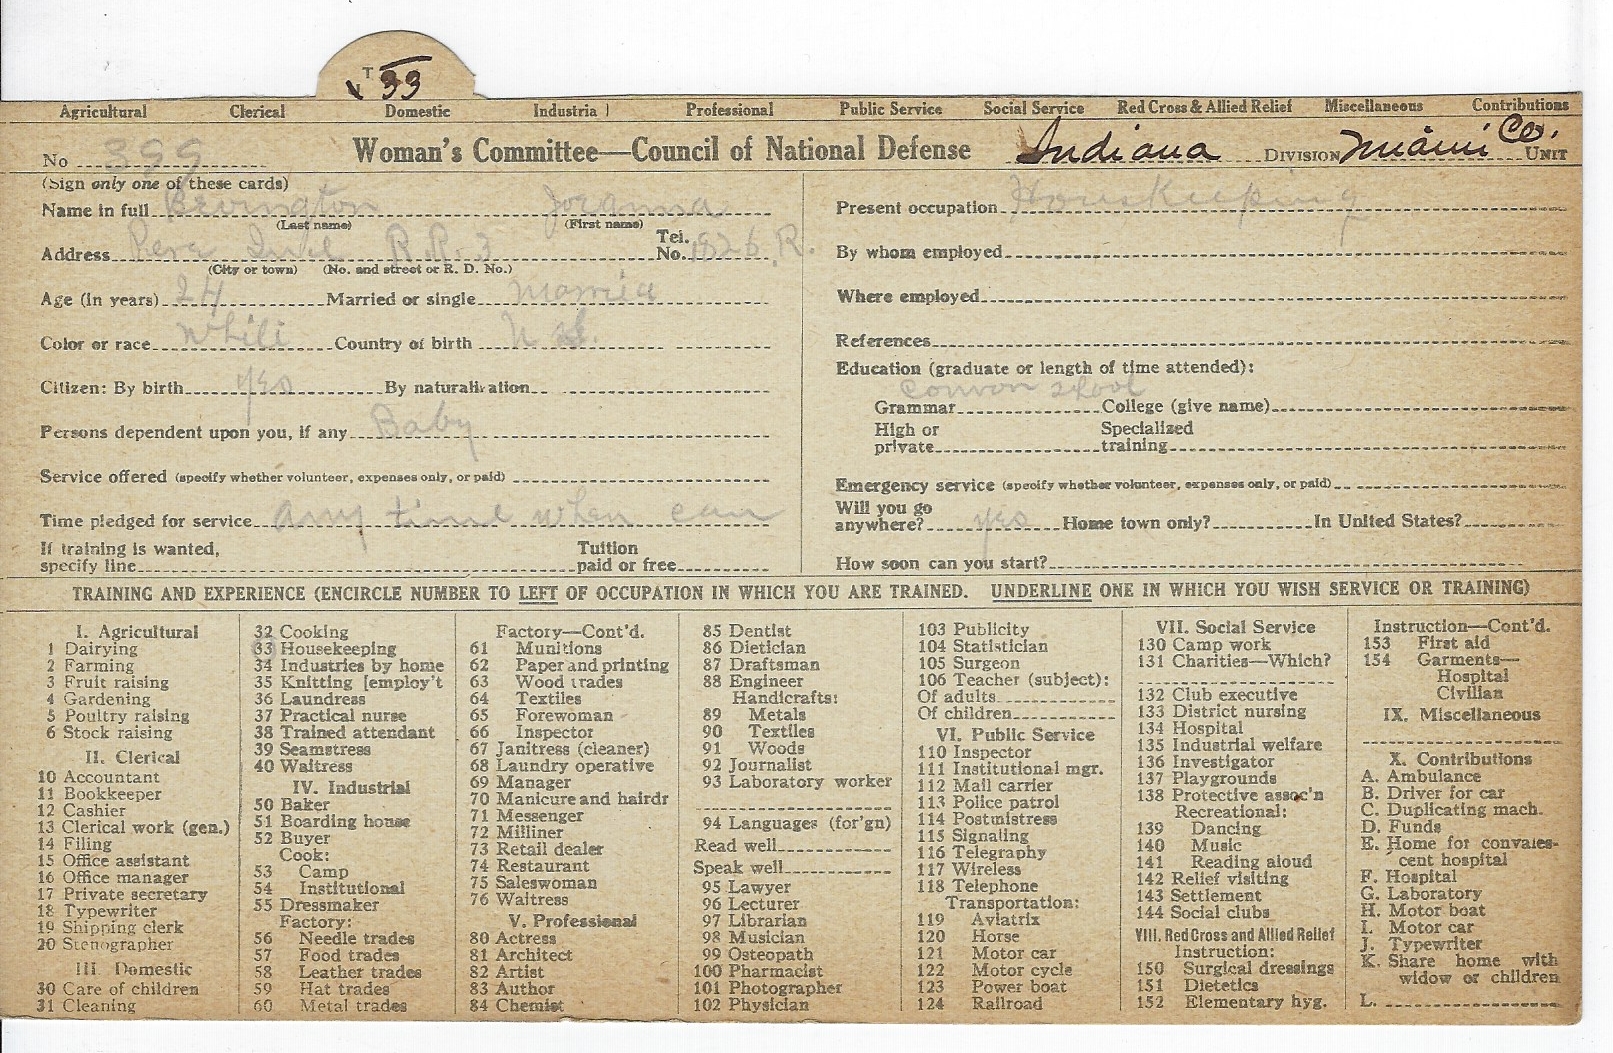 T 33
Agricultural Clerical Domestic Industrial Professional Public Service Social Service Red Cross & Allied Relief Miscellaneous Contributions
No 399 Woman's Committee—Council of National Defense Indiana DIVISION Miami Co. UNIT
(Sign only one of these cards)
Name in full Bevington
(Last name) (First name)
Address R.R. 3 Tel. No. 1826 R.
(City or town) (No. and street or R. D. No.)
Age (in years) 24 Married or single
Color or race Country of birth
Citizen: By birth yes By naturalization
Persons dependent upon you, if any Baby
Service offered (specify whether volunteer, expenses only, or paid)
Time pledged for service any time when can
If training is wanted, specify line Tuition paid or free
Present occupation Houskeeping
By whom employed
Where employed
References
Education (graduate or length of time attended):
Grammar College (give name)
High or private Specialized training
Emergency service (specify whether volunteer, expenses only, or paid)
Will you go anywhere? yes Home town only? In United States?
How soon can you start?
TRAINING AND EXPERIENCE (ENCIRCLE NUMBER TO LEFT OF OCCUPATION IN WHICH YOU ARE TRAINED. UNDERLINE ONE IN WHICH YOU WISH SERVICE OR TRAINING)
I. Agricultural
1 Dairying
2 Farming
3 Fruit raising
4 Gardening
5 Poultry raising
6 Stock raising
II. Clerical
10 Accountant
11 Bookkeeper
12 Cashier
13 Clerical work (gen.)
14 Filing
15 Office assistant
16 Office manager
17 Private secretary
18 Typewriter
19 Shipping clerk
20 Stenographer
III. Domestic
30 Care of children
31 Cleaning
32 Cooking
33 Housekeeping
34 Industries by home
35 Knitting [employ't
36 Laundress
37 Practical nurse
38 Trained attendant
39 Seamstress
40 Waitress
IV. Industrial
50 Baker
51 Boarding house
52 Buyer
Cook:
53 Camp
54 Institutional
55 Dressmaker
Factory:
56 Needle trades
57 Food trades
58 Leather trades
59 Hat trades
60 Metal trades
Factory—Cont'd.
61 Munitions
62 Paper and printing
63 Wood trades
64 Textiles
65 Forewoman
66 Inspector
67 Janitress (cleaner)
68 Laundry operative
69 Manager
70 Manicure and hairdr
71 Messenger
72 Milliner
73 Retail dealer
74 Restaurant
75 Saleswoman
76 Waitress
V. Professional
80 Actress
81 Architect
82 Artist
83 Author
84 Chemist
85 Dentist
86 Dietician
87 Draftsman
88 Engineer
Handicrafts:
89 Metals
90 Textiles
91 Woods
92 Journalist
93 Laboratory worker
94 Languages (for'gn)
Read well
Speak well
95 Lawyer
96 Lecturer
97 Librarian
98 Musician
99 Osteopath
100 Pharmacist
101 Photographer
102 Physician
103 Publicity
104 Statistician
105 Surgeon
106 Teacher (subject):
Of adults
Of children
VI. Public Service
110 Inspector
111 Institutional mgr.
112 Mail carrier
113 Police patrol
114 Postmistress
115 Signaling
116 Telegraphy
117 Wireless
118 Telephone
Transportation:
119 Aviatrix
120 Horse
121 Motor car
122 Motor cycle
123 Power boat
124 Railroad
VII. Social Service
130 Camp work
131 Charities—Which?
132 Club executive
133 District nursing
134 Hospital
135 Industrial welfare
136 Investigator
137 Playgrounds
138 Protective assoc'n
Recreational:
139 Dancing
140 Music
141 Reading aloud
142 Relief visiting
143 Settlement
144 Social clubs
VIII. Red Cross and Allied Relief
Instruction:
150 Surgical dressings
151 Dietetics
152 Elementary hyg.
Instruction—Cont'd.
153 First aid
154 Garments—
Hospital
Civilian
IX. Miscellaneous
X. Contributions
A. Ambulance
B. Driver for car
C. Duplicating mach.
D. Funds
E. Home for convales-
cent hospital
F. Hospital
G. Laboratory
H. Motor boat
I. Motor car
J. Typewriter
K. Share home with
widow or children
L.